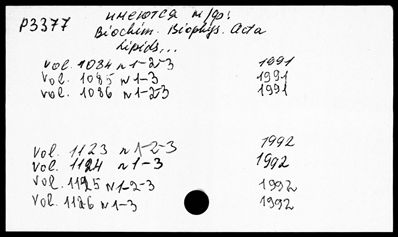 P3377 имеются м/ф:
Biochim. Biophys. Acta
Lipids...
vol. 1084 N 1-2-3 1991
vol. 1085 N 1-3 1991
vol. 1086 N 1-2-3 1991
vol. 1123 N 1-2-3 1992
vol. 1124 N 1-3 1992
vol. 1125 N 1-2-3 1992
vol. 1126 N 1-3 1992